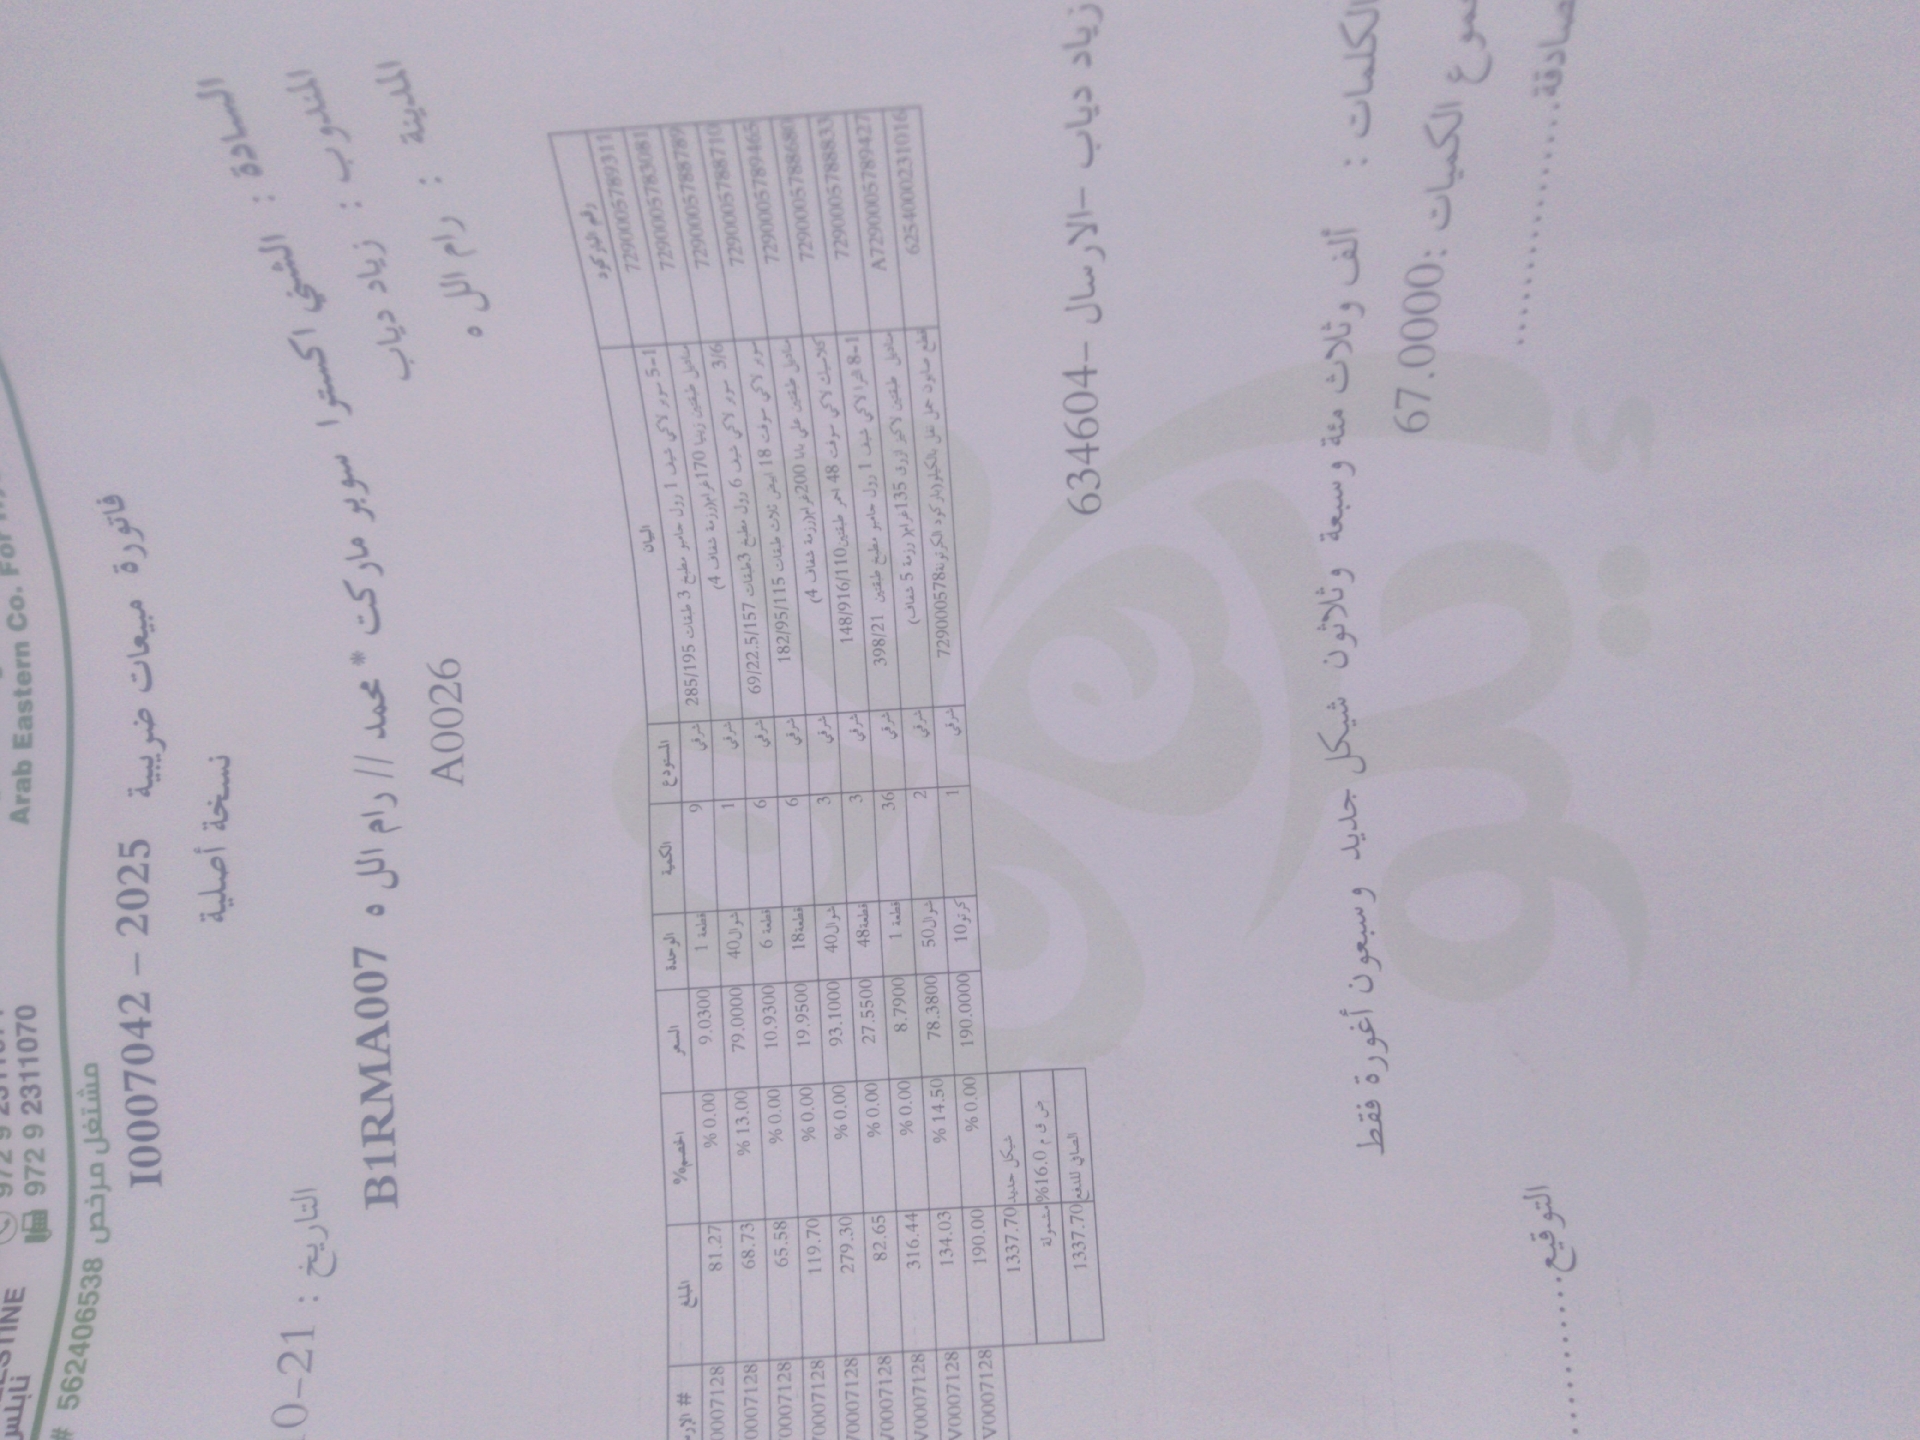 Arab Eastern Co. For
972 9 2311070
# 562406538 مشتغل مرخص
فاتورة مبيعات ضريبية I0007042 – 2025
نسخة أصلية
السادة : الشني اكسترا سوبر ماركت * محمد // رام الل ه B1RMA007
التاريخ : 21-10
المندوب : زياد دياب
A0026
المدينة : رام الل ه
رقم الباركود البيان المستودع الكمية الوحدة السعر الخصم% المبلغ #
7290005789311 5-1 سوبر لاكي شيف 1 رول جامبو مطبخ 3 طبقات 285/195 شرفي 9 قطعة 1 9.0300 % 0.00 81.27 0007128
7290005783081 مناديل طقين زينيا 170غرام(رزمة شفاف 4) شرفي 1 شوال40 79.0000 % 13.00 68.73 0007128
7290005788789 3/6 سوبر لاكي شيف 6 رول مطبخ 3طبقات 69/22.5/157 شرفي 6 قطعة 6 10.9300 % 0.00 65.58 0007128
7290005788710 سوبر لاكي سوفت 18 ابيض ثلاث طبقات 182/95/115 شرفي 6 قطعة18 19.9500 % 0.00 119.70 0007128
7290005789465 مناديل طقين علي بابا 200غرام(رزمة شفاف 4) شرفي 3 شوال40 93.1000 % 0.00 279.30 V0007128
7290005788680 كلاسيك لاكي سوفت 48 احمر طبقتين148/916/110 شرفي 3 قطعة48 27.5500 % 0.00 82.65 V0007128
7290005788833 8-1 الترا لاكي شيف 1 رول جامبو مطبخ طبقتين 398/21 شرفي 36 قطعة 1 8.7900 % 0.00 316.44 V0007128
A7290005789427 مناديل طبقتين لاكير ازرق 135غرام( رزمة 5 شفاف) شرفي 2 شوال50 78.3800 % 14.50 134.03 V0007128
6254000231016 قطع صابون جمل نفل بالكيلو(باركود الكرتونة729000578 شرفي 1 كرتو10 190.0000 % 0.00 190.00 V0007128
شيكل جديد 1337.70
ض ق م 16.0% مشمولة
الصافي للدفع 1337.70
زياد دياب – الارسال – 634604
الكلمات : ألف وثلاث مئة وسبعة وثلاثون شيكل جديد وسبعون أغورة فقط
الكميات :67.0000
التوقيع